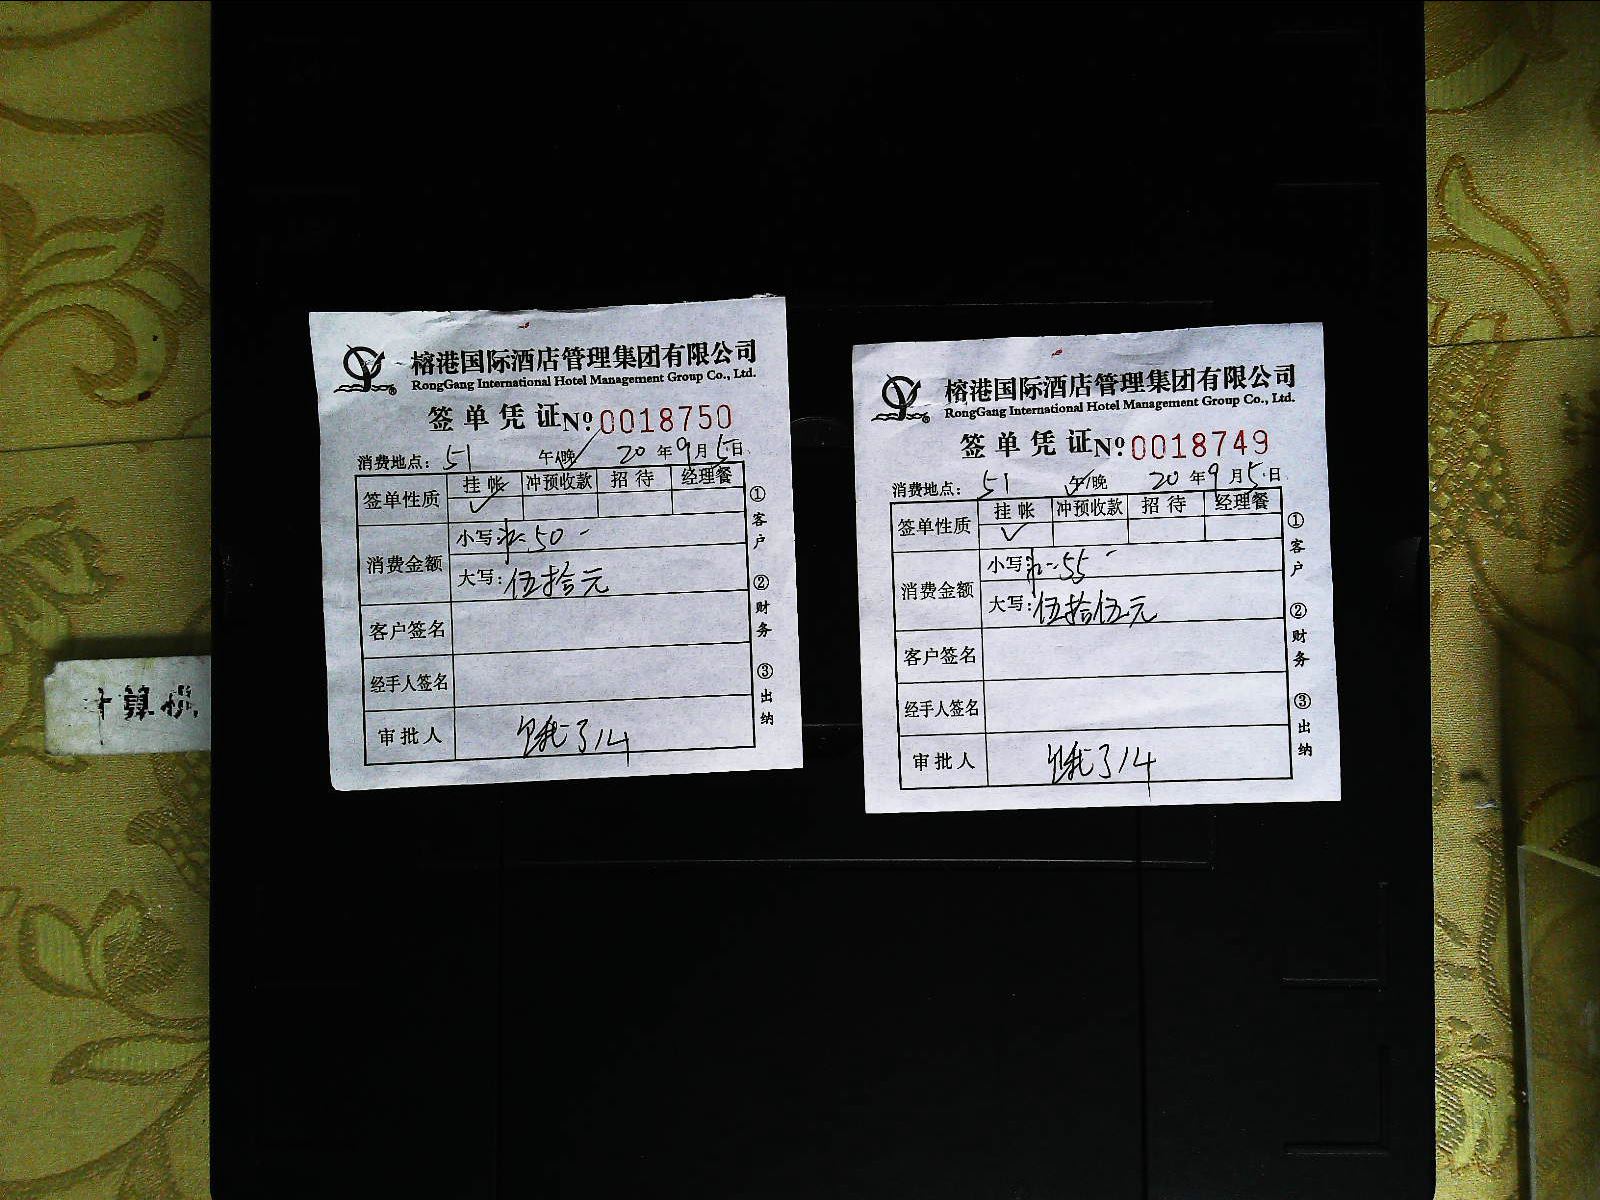 榕港国际酒店管理集团有限公司
RongGang International Hotel Management Group Co., Ltd.
签单凭证 Nº 0018750
消费地点: 51 午/晚 20年9月5日
签单性质 挂帐 冲预收款 招待 经理餐
消费金额
小写 50
大写: 伍拾元
客户签名
经手人签名
审批人 饿了14
①客户 ②财务 ③出纳
榕港国际酒店管理集团有限公司
RongGang International Hotel Management Group Co., Ltd.
签单凭证 Nº 0018749
消费地点: 51 午/晚 20年9月5日
签单性质 挂帐 冲预收款 招待 经理餐
消费金额
小写 55
大写: 伍拾伍元
客户签名
经手人签名
审批人 饿了14
①客户 ②财务 ③出纳